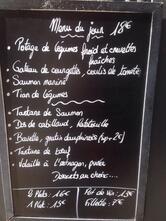 Menu du jour 18€
• Potage de légumes froid et crevettes
fraîches
• Gateau de courgettes, coulis de tomate
• Saumon mariné
• Tian de légumes
• Tartare de Saumon
• Dos de cabillaud, ratatouille
• Bavette, gratin dauphinois (sup+2€)
• Tartare de bœuf
• Volaille à l'estragon, purée
Desserts au choix...
2 Plats: 16€
1 Plat: 13€
Pot de vin: 13€
Fillette: 7€